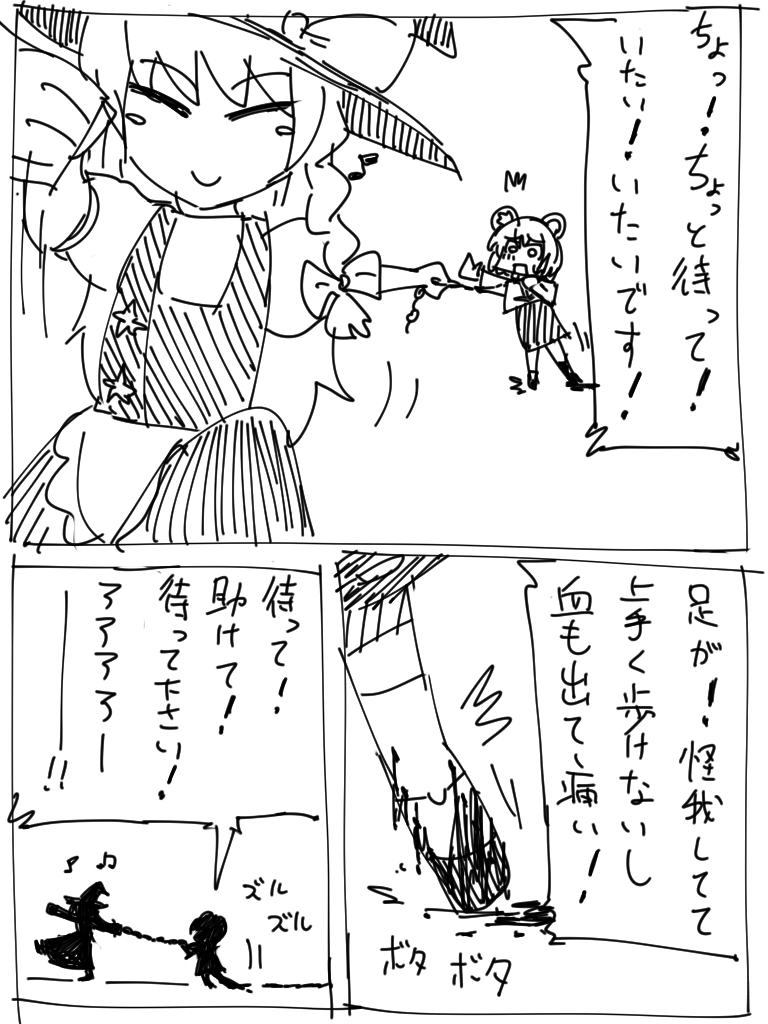 ちょっ！ちょっと待って！
いたい！いたいです！
足が！怪我してて
上手く歩けないし
血も出て、痛い！
ボタ
ボタ
待って！
助けて！
待ってたさい！
アアアアー
ーー!!
ズル
ズル